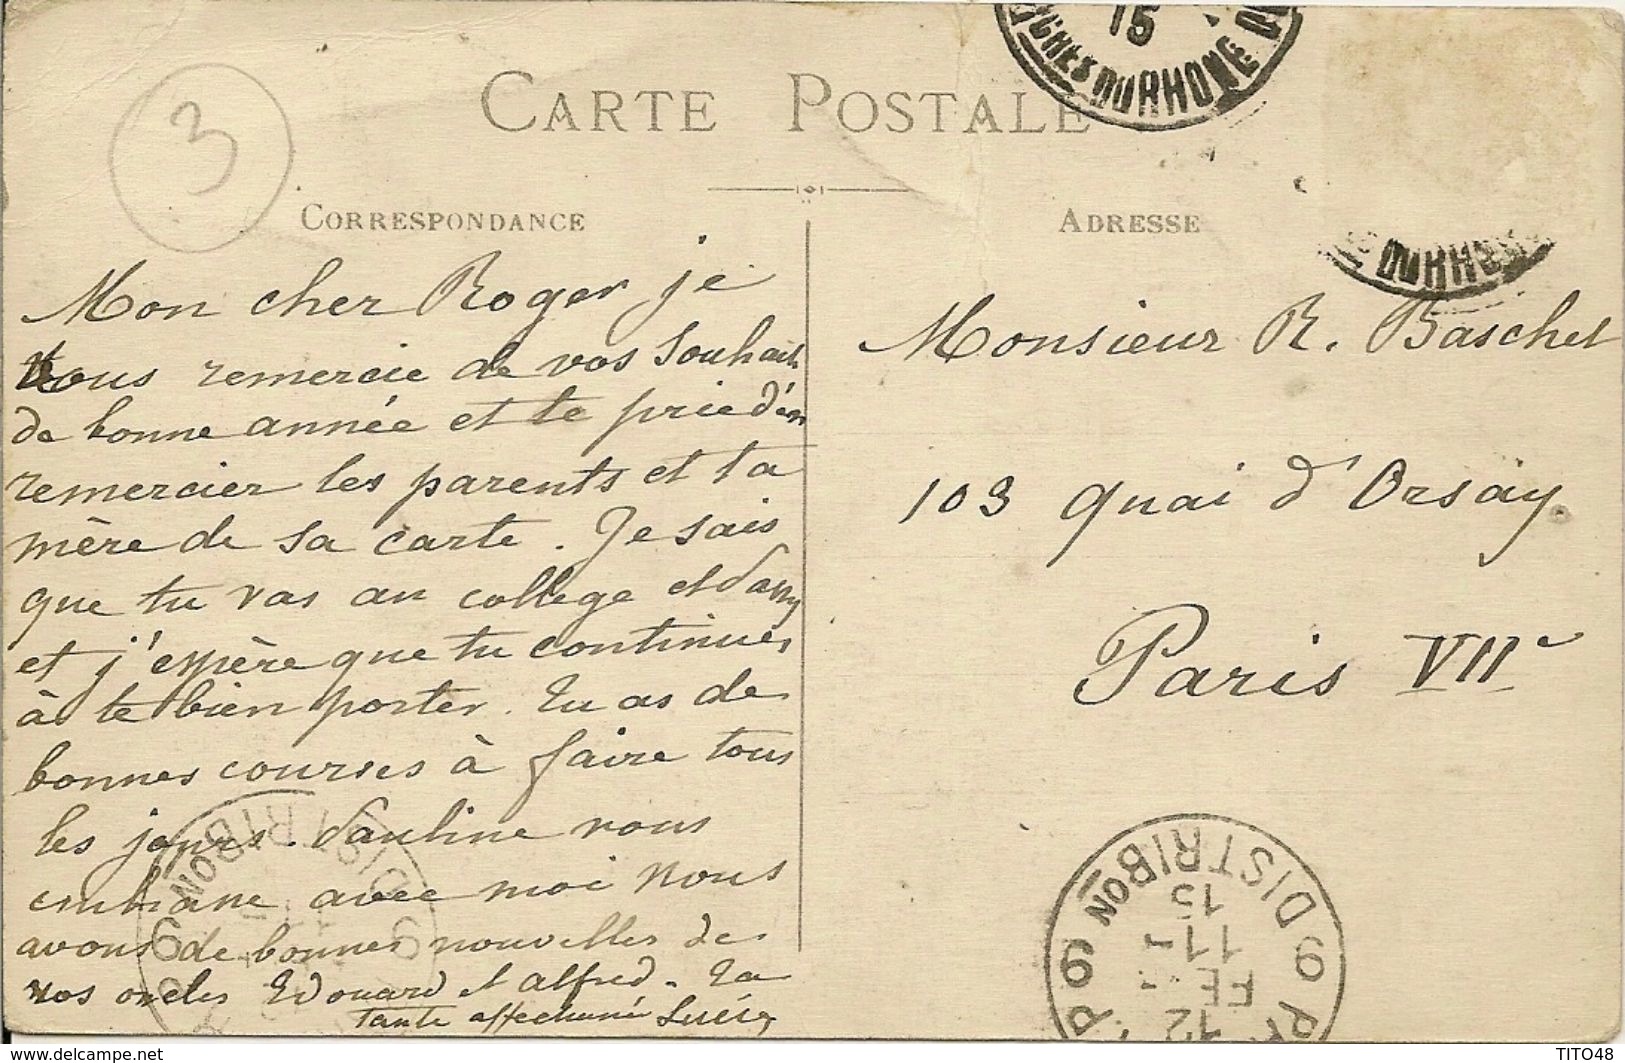 3
CARTE POSTALE
15
CHES DU RHONE
DU RHO
CORRESPONDANCE
ADRESSE
Mon cher Roger je
vous remercie de vos souhaits
de bonne année et te prie d'en
remercier tes parents et ta
mère de sa carte. Je sais
que tu vas au collège
et j'espère que tu continues
à te bien porter. Tu as de
bonnes courses à faire tous
les jours. Pauline vous
embrasse avec moi nous
avons de bonnes nouvelles de
vos oncles Edouard et Alfred. Ta
tante affectionnée
Monsieur R. Baschet
103 quai d'Orsay.
Paris VIIe
DISTRIBON
9 9
DISTRIBON
15
11
FE
12
9 9
delcampe.net
TITO48